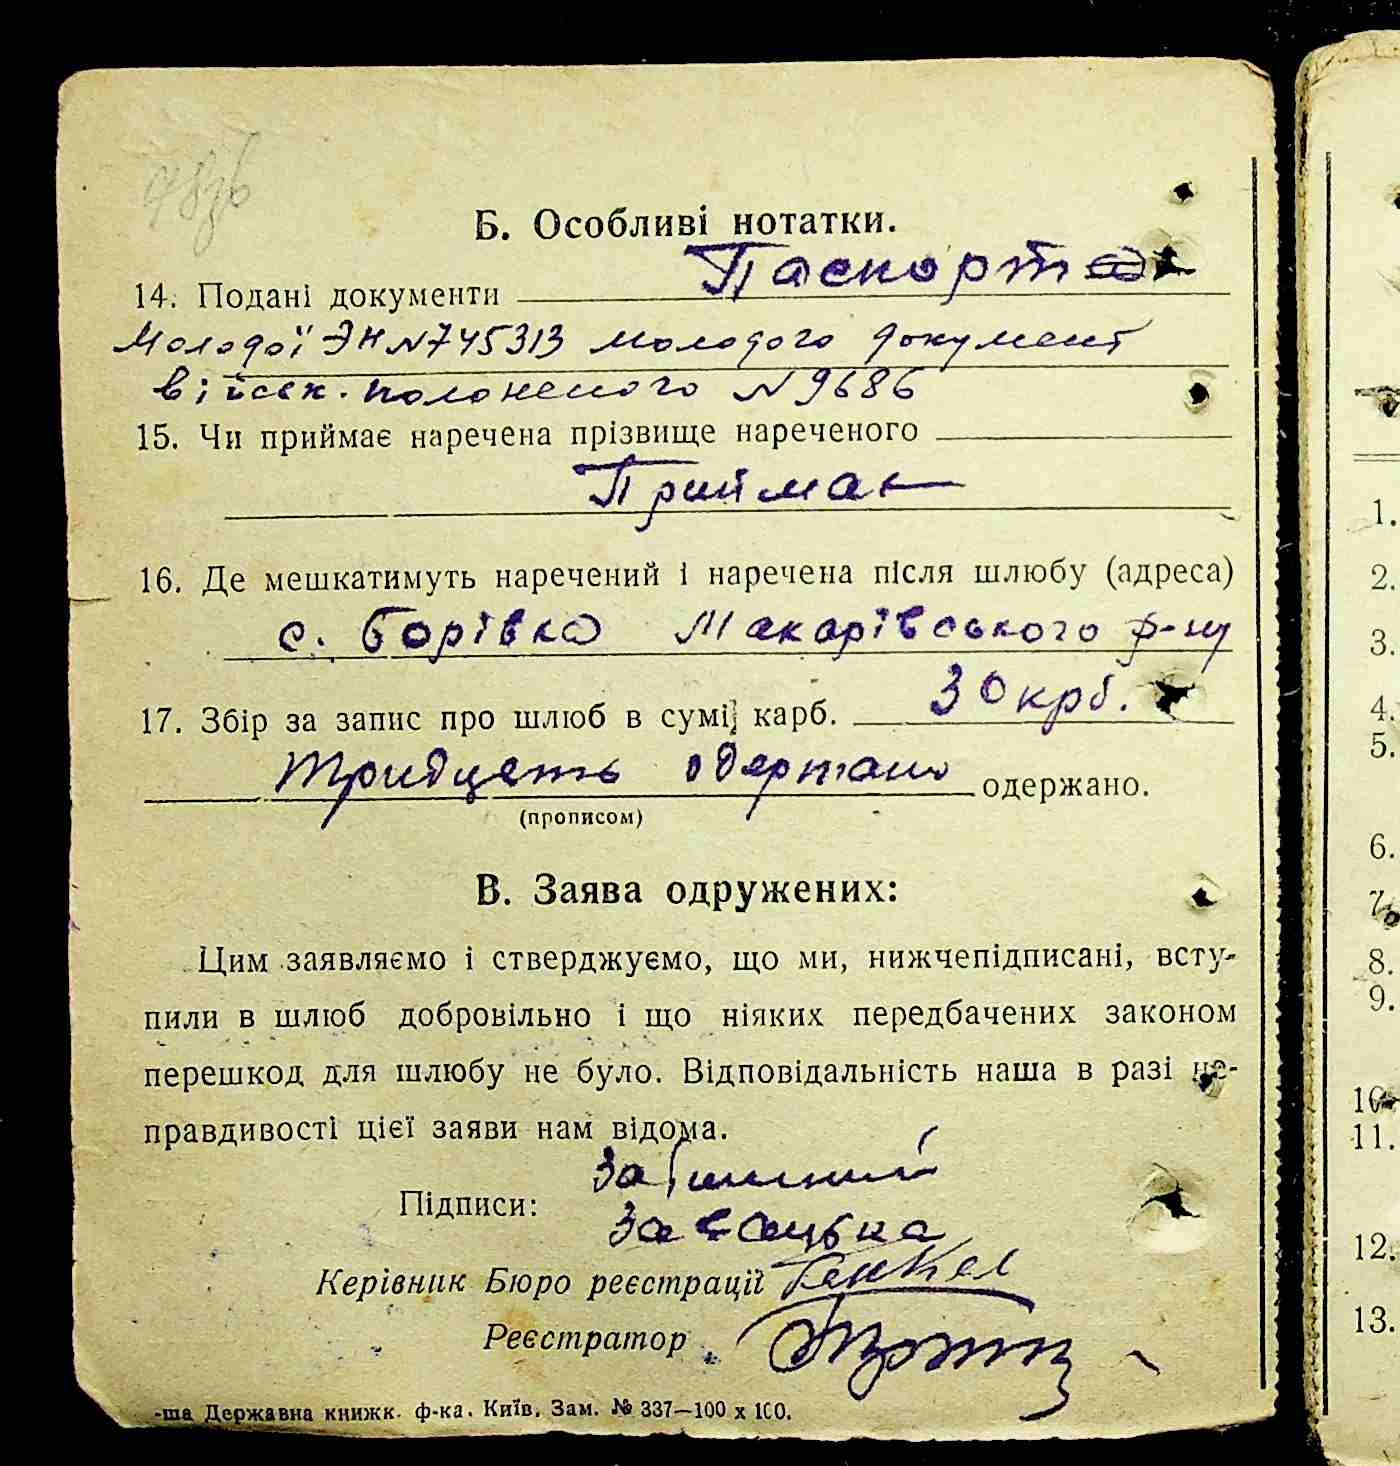 Б. Особливі нотатки.
14. Подані документи Паспорт
Молодої ЭН N745313 молодого документ
військ. полоненого N9686
15. Чи приймає наречена прізвище нареченого
Приймає
16. Де мешкатимуть наречений і наречена після шлюбу (адреса)
с. Борівка Макарівського р-ну
17. Збір за запис про шлюб в сумі карб. 30 крб.
Тридцять одержано одержано.
(прописом)
В. Заява одружених:
Цим заявляємо і стверджуємо, що ми, нижчепідписані, всту-
пили в шлюб добровільно і що ніяких передбачених законом
перешкод для шлюбу не було. Відповідальність наша в разі не-
правдивості цієї заяви нам відома.
Підписи:
Керівник Бюро реєстрації
Реєстратор
-ша Державна книжк. ф-ка. Київ. Зам. № 337—100 х 100.
1.
2.
3.
4.
5.
6.
7.
8.
9.
10.
11.
12.
13.